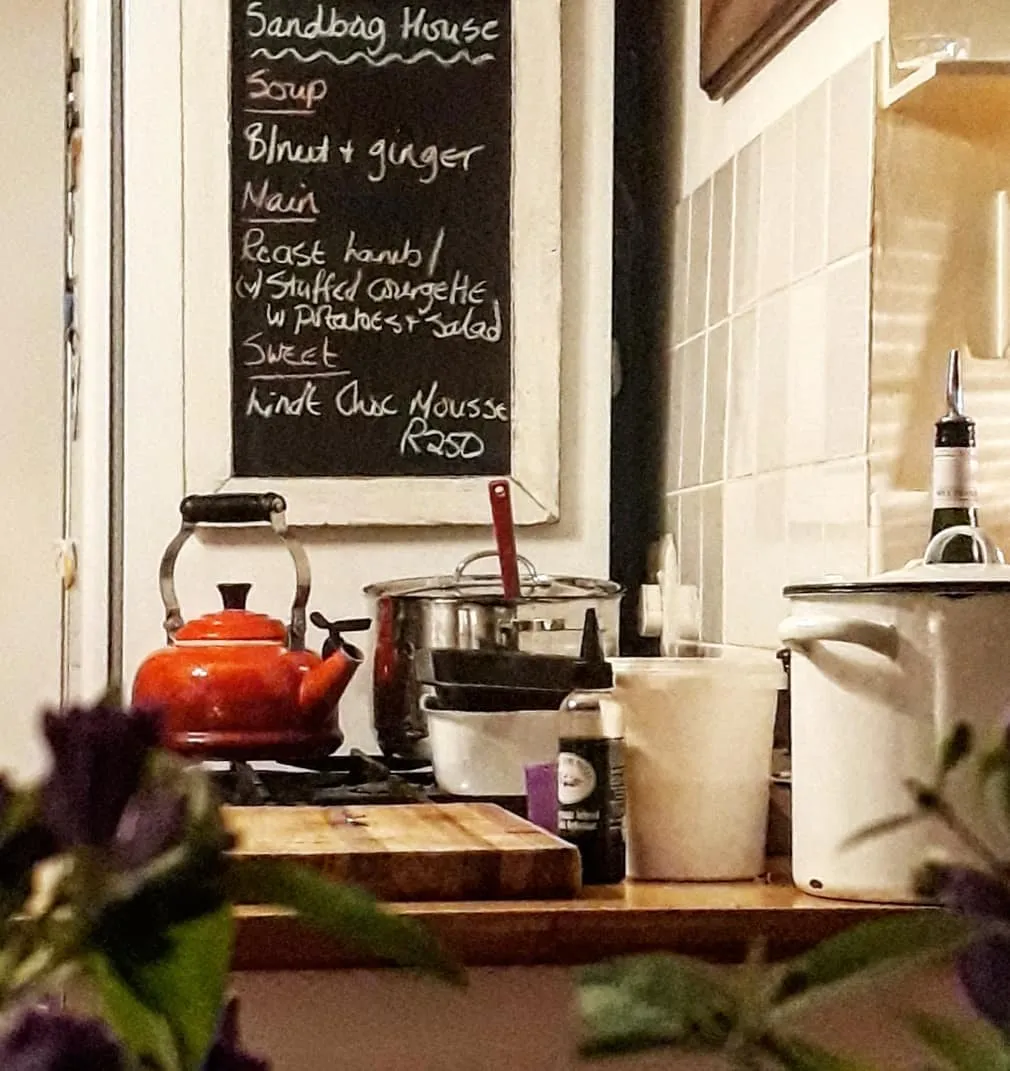 Sandbag House
Soup
B/nut + ginger
Main
Roast Lamb/
(v) Stuffed Courgette
w potatoes + salad
Sweet
Lindt Choc Mousse
R250